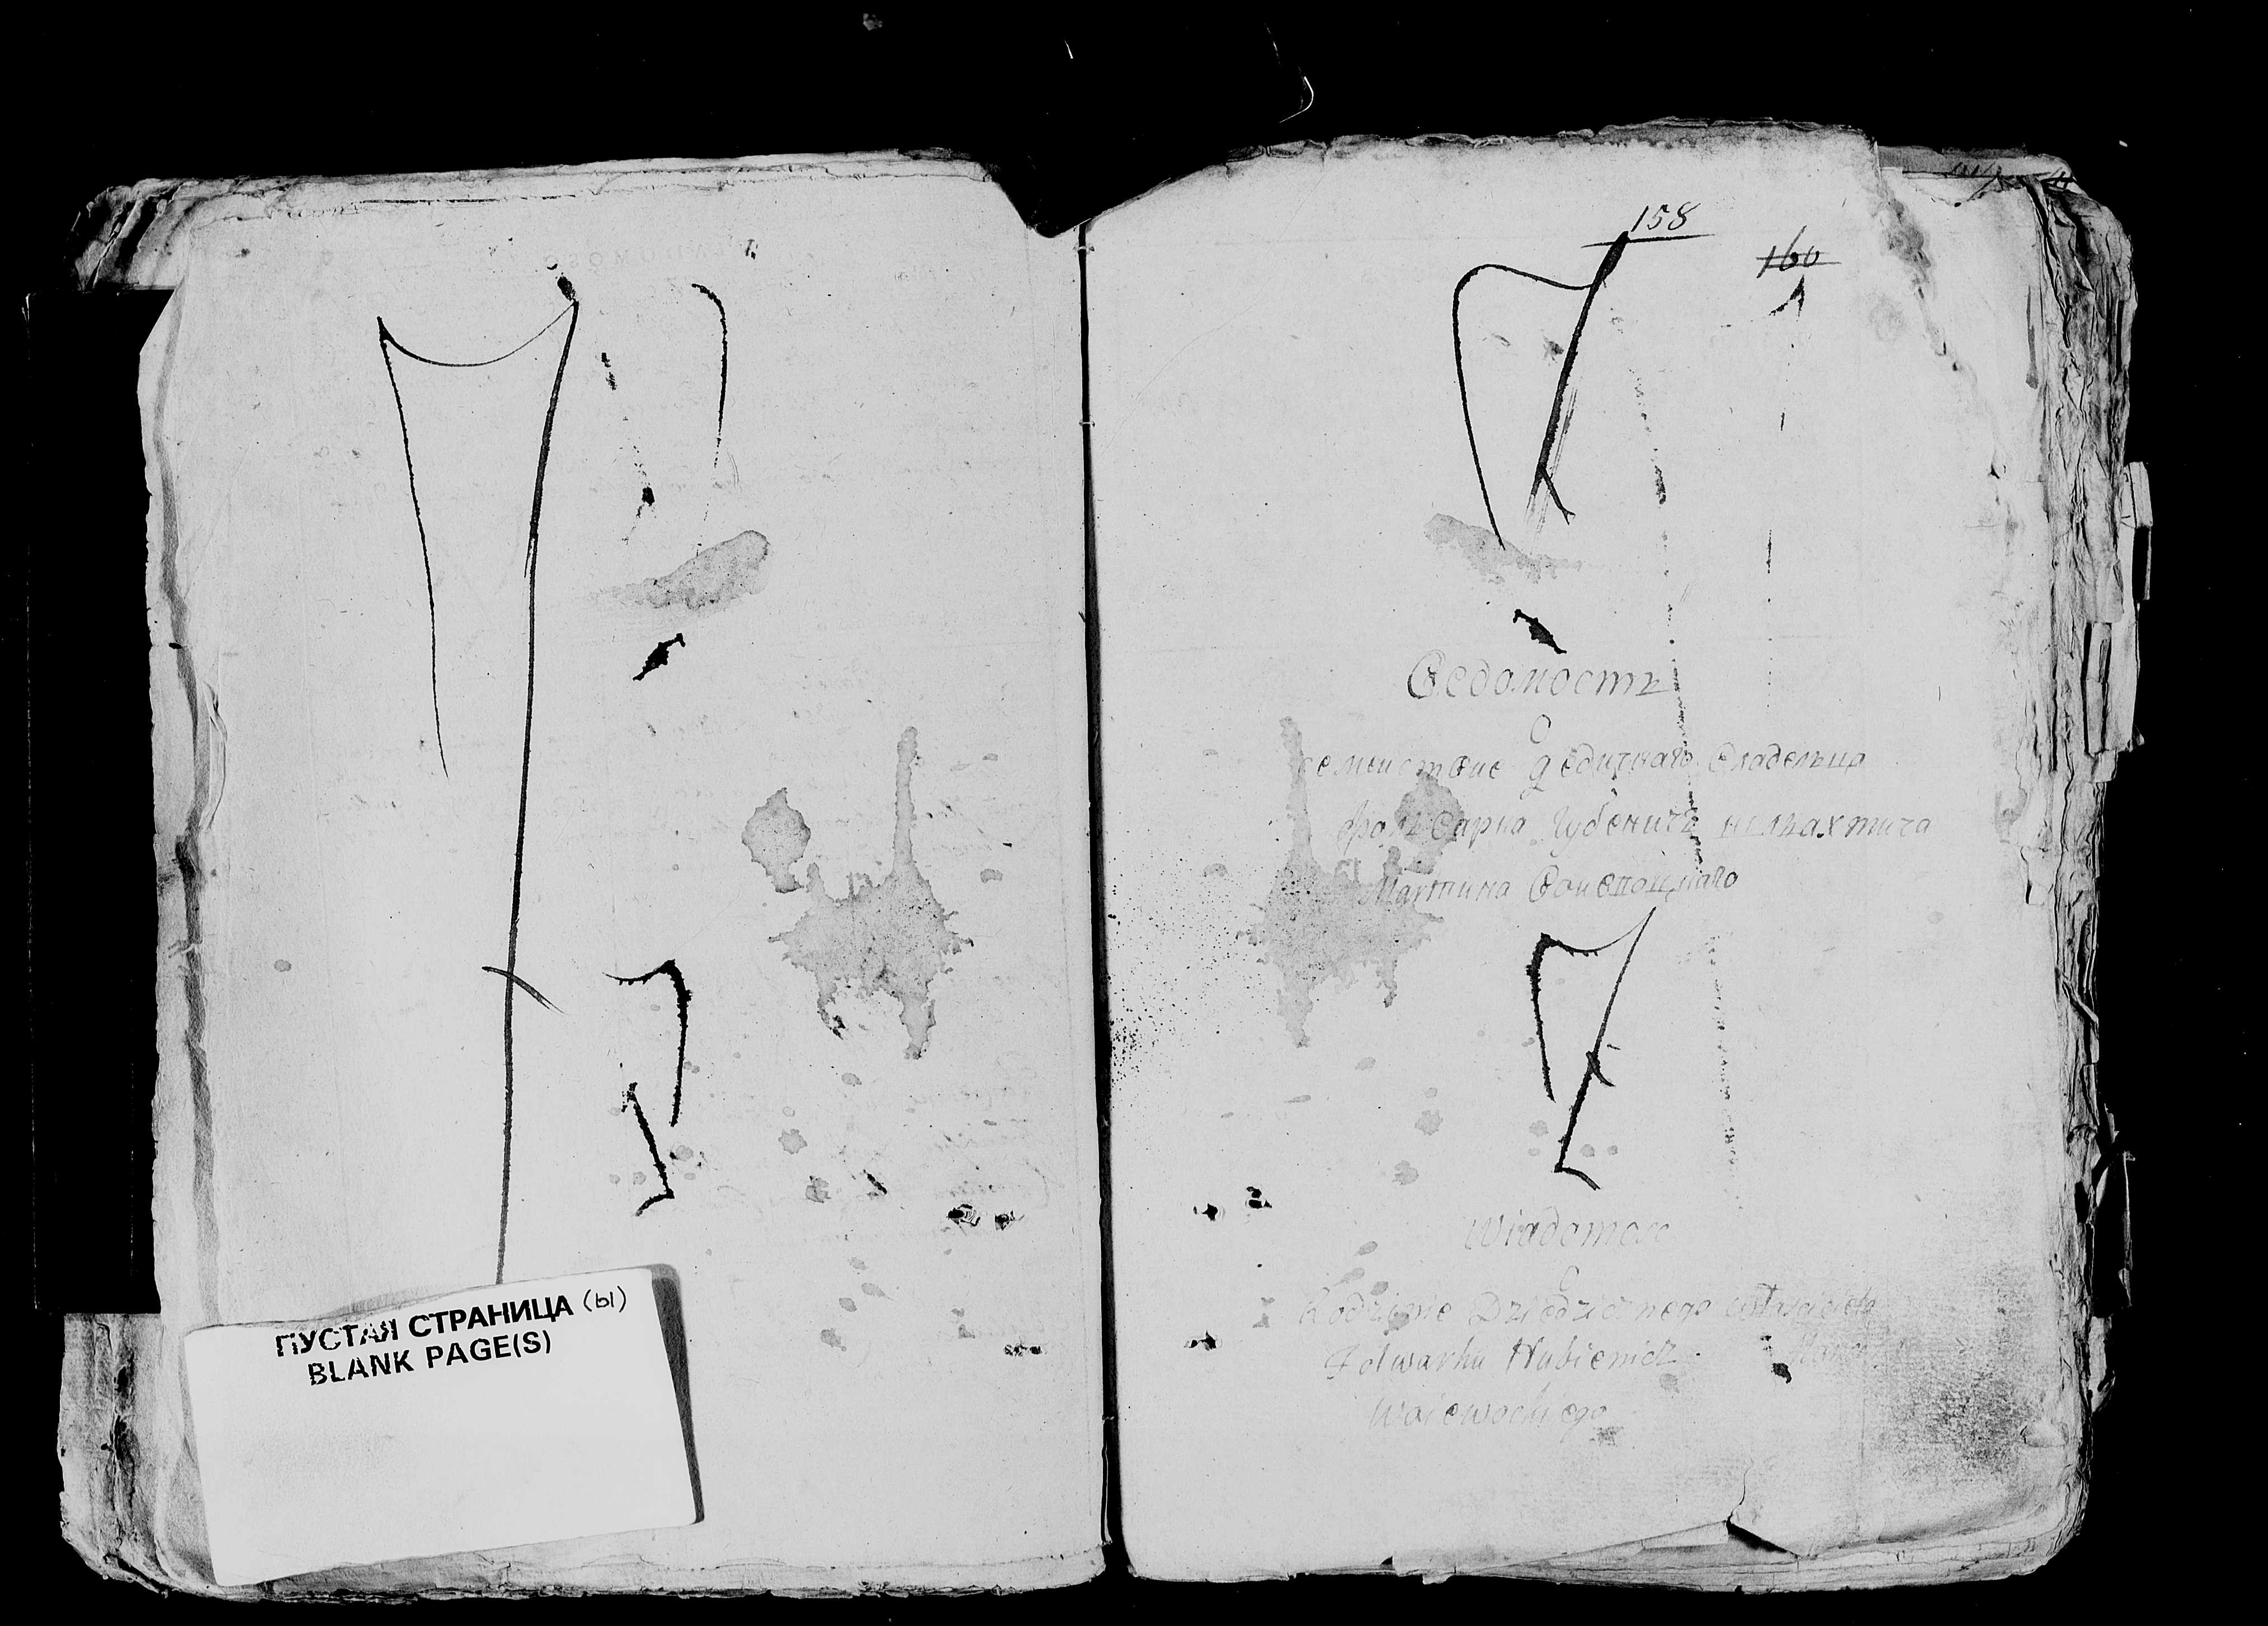 ПУСТАЯ СТРАНИЦА (ы)
BLANK PAGE(S)
158
160
Ведомость
О
семействе дедичнаго владельца
фольварка Губеничъ шляхтича
Мартина
Wiadomosc
O
Rodzinie Dziedzicznego własciciela
Folwarku Hubienicz